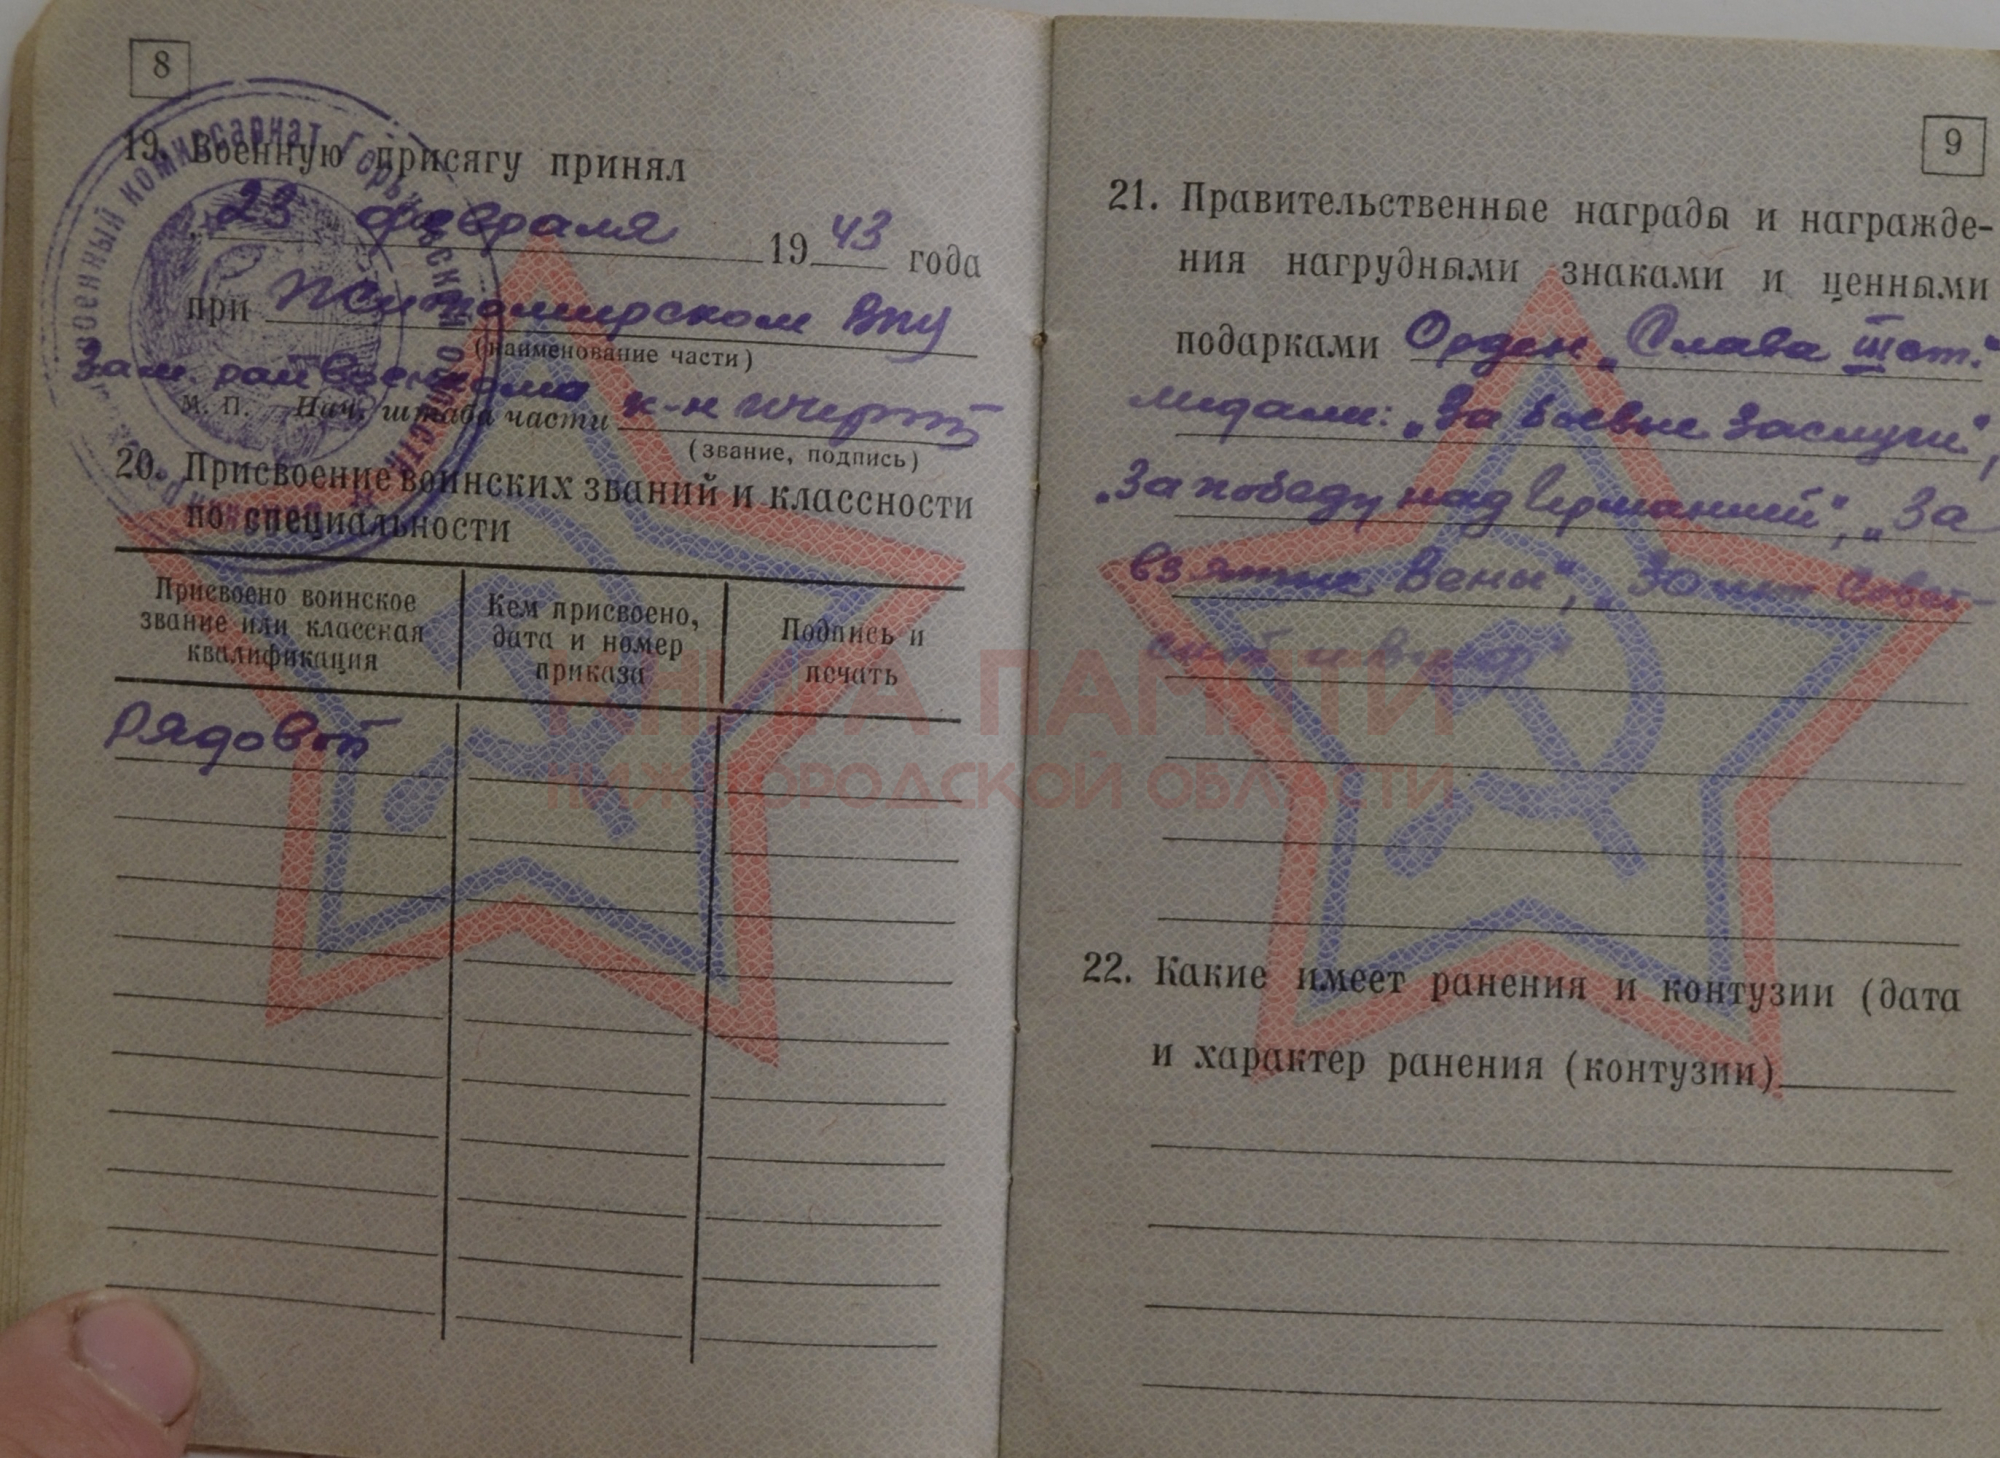 8
19. Военную присягу принял
23 февраля 1943 года
при Житомирском ВПУ
(наименование части)
Зам. райвоенкома
М. П. Нач. штаба части к-н
(звание, подпись)
20. Присвоение воинских званий и классности
по специальности
Присвоено воинское звание или классная квалификация
Кем присвоено, дата и номер приказа
Подпись и печать
Рядовой
Военный комиссариат Горьковской области
9
21. Правительственные награды и награжде-
ния нагрудными знаками и ценными
подарками Орден „Слава III ст."
медали: „За боевые заслуги",
„За победу над Германией", „За
взятие Вены", Совет-
ской
22. Какие имеет ранения и контузии (дата
и характер ранения (контузии)
КНИГА ПАМЯТИ
НИЖЕГОРОДСКОЙ ОБЛАСТИ